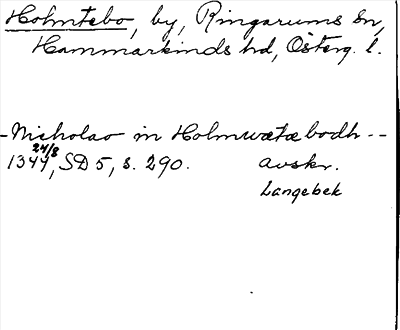 Holmtebo, by, Ringarums sn,
Hammarkinds hd, Österg. l.
- Nicholao in Holmwætæbodh --
1344 24/8, SD 5, s. 290. avskr.
Langebek